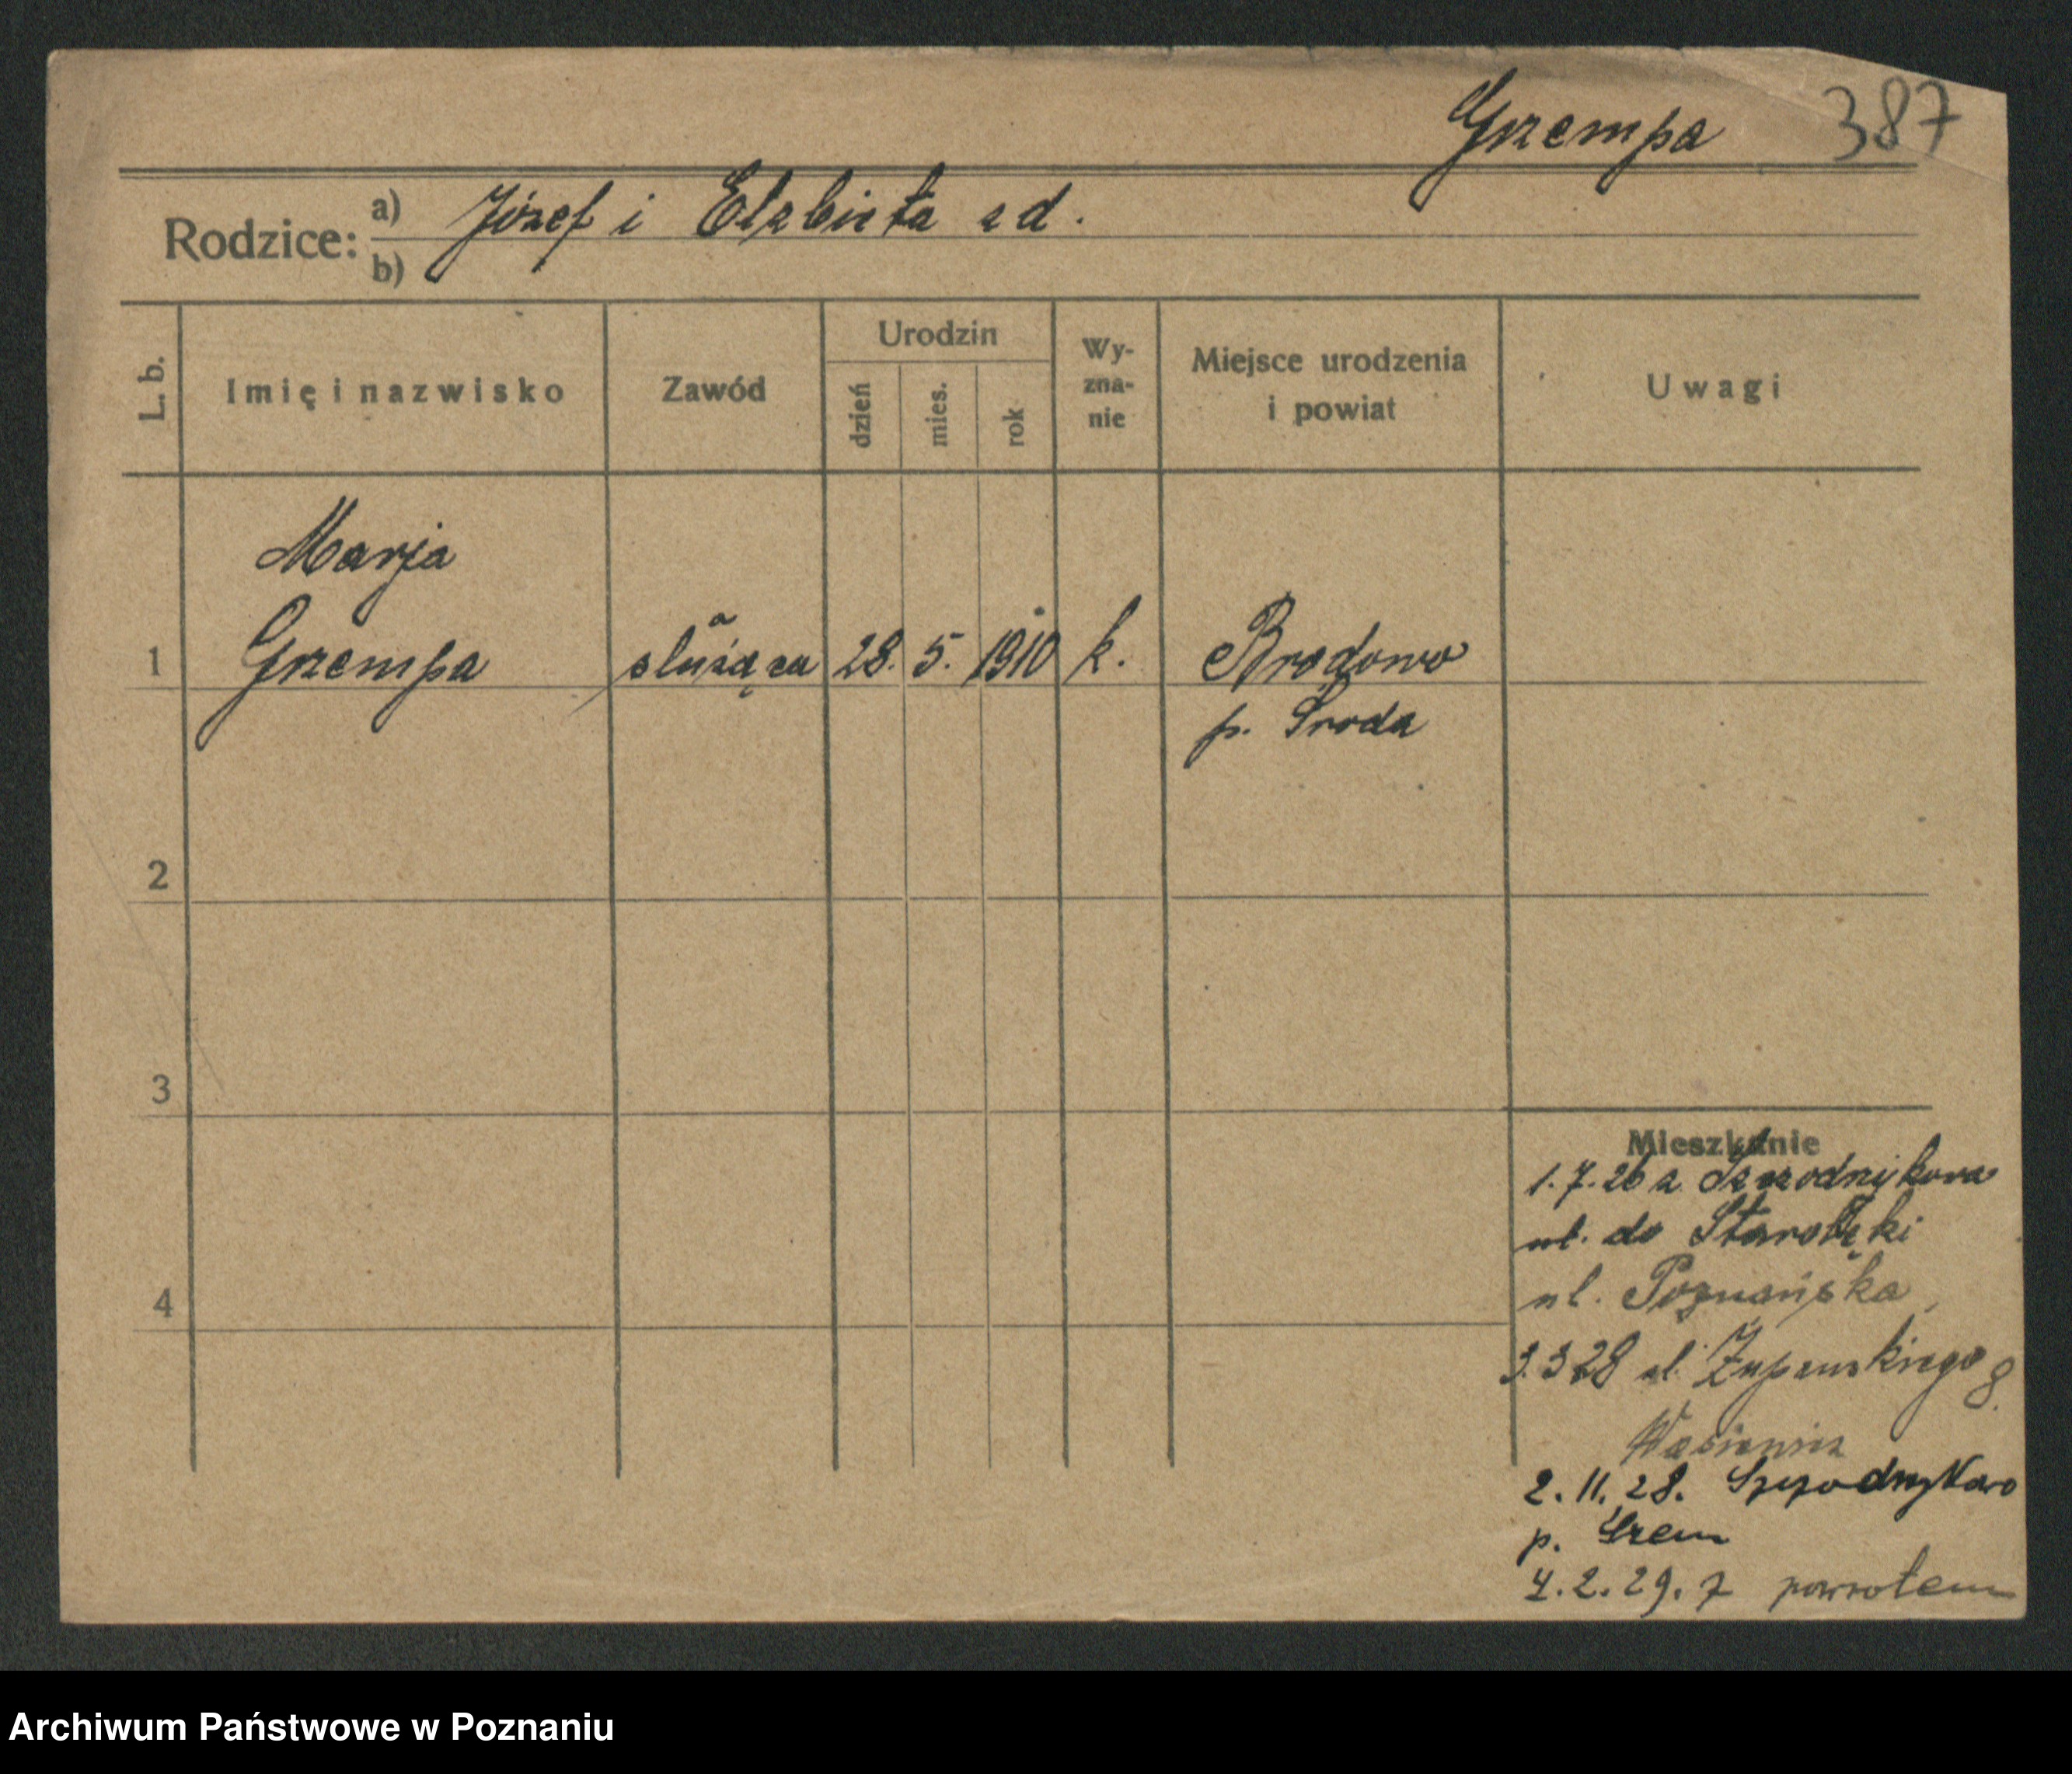 Grzempa 387
Rodzice: a) Józef i Elzbieta zd.
b)
L. b.
Imię i nazwisko
Zawód
Urodzin
dzień
mies.
rok
Wy-
zna-
nie
Miejsce urodzenia
i powiat
Uwagi
Marja
1 Grzempa służąca 28. 5. 1910 k. Brodowo
p. Środa
2
3
4
Mieszkanie
1.7.26 z
do Starołęki
ul. Poznańska,
3.3 28 ul. Żupańskiego 8.
2.11.28.
p. Śrem
4.2.29. z powrotem
Archiwum Państwowe w Poznaniu